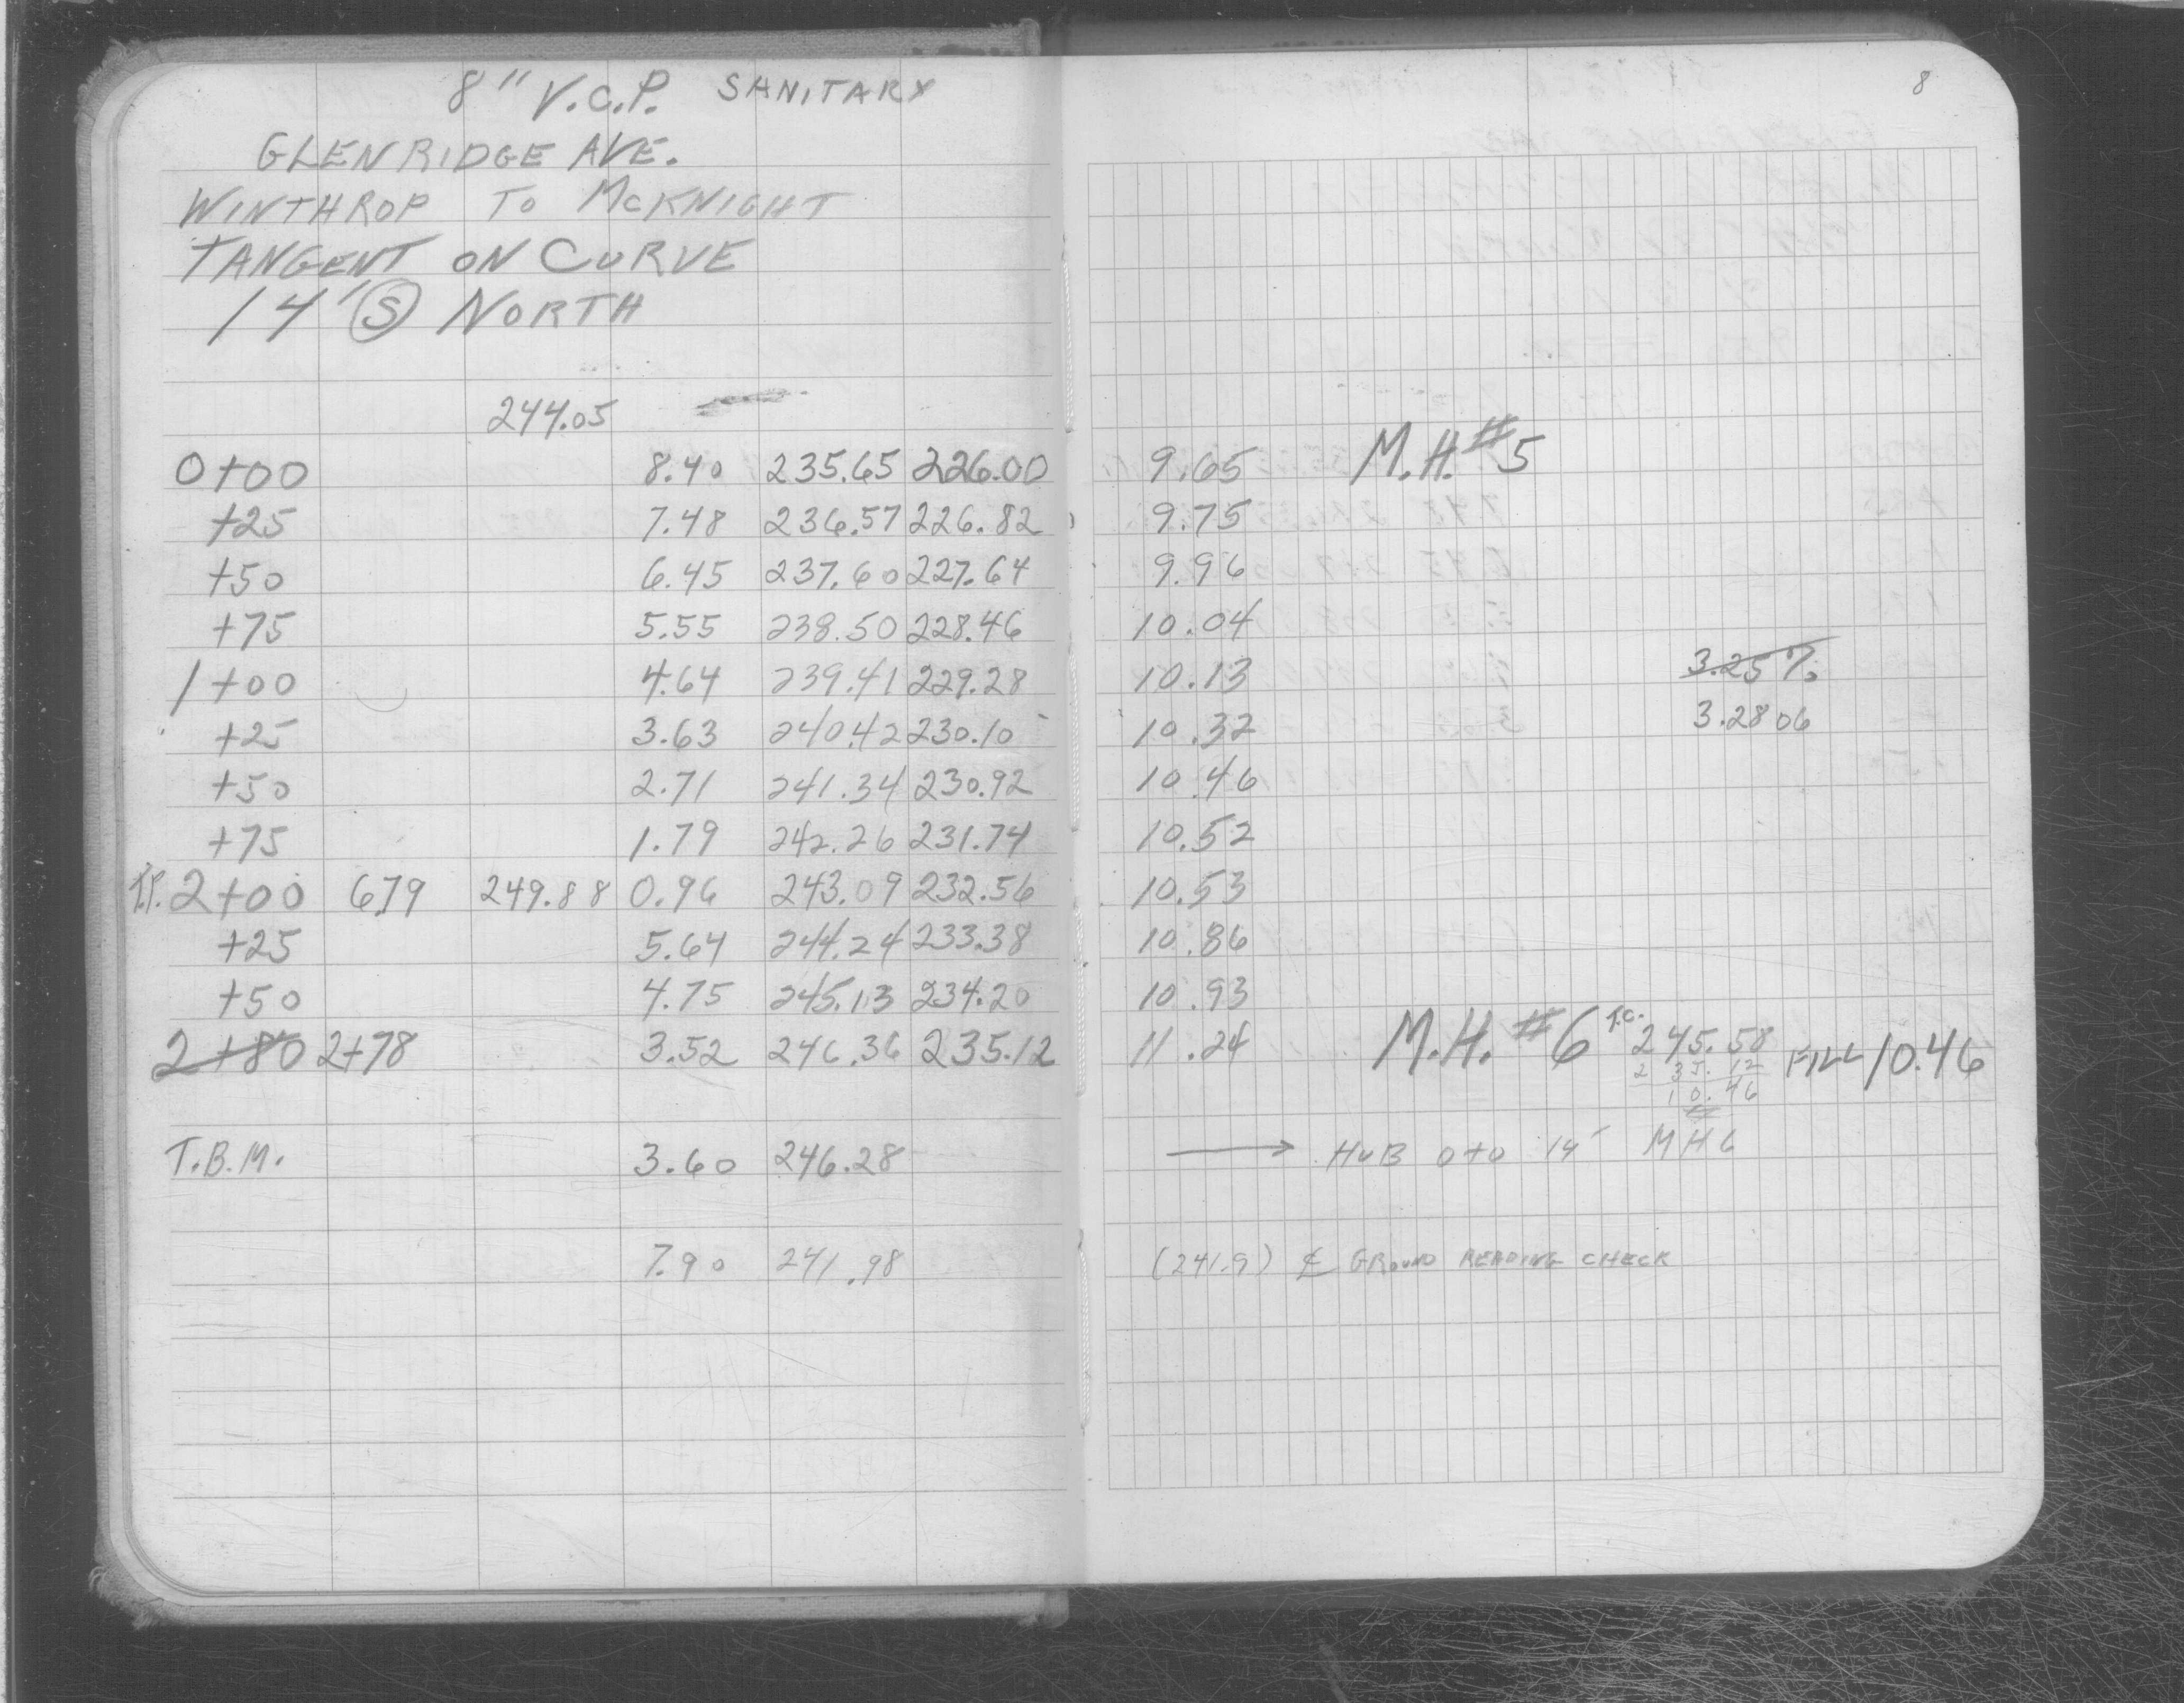 8" V.C.P. SANITARY
8
GLENRIDGE AVE.
WINTHROP TO McKNIGHT
TANGENT ON CURVE
14' Ⓢ NORTH
244.05
0+00 8.40 235.65 226.00 9.65 M.H.#5
+25 7.48 236.57 226.82 9.75
+50 6.45 237.60 227.64 9.96
+75 5.55 238.50 228.46 10.04
1+00 4.64 239.41 229.28 10.13 3.25%
+25 3.63 240.42 230.10 10.32 3.2806
+50 2.71 241.34 230.92 10.46
+75 1.79 242.26 231.74 10.52
T.P. 2+00 6.79 249.88 0.96 243.09 232.56 10.53
+25 5.64 244.24 233.38 10.86
+50 4.75 245.13 234.20 10.93
2+80 2+78 3.52 246.36 235.12 11.24 M.H. #6 T.C. 245.58 FILL 10.46
235.12
10.46
T.B.M. 3.60 246.28 → HUB 0+0 14' MH6
7.90 241.98 (241.9) ℄ GROUND READING CHECK